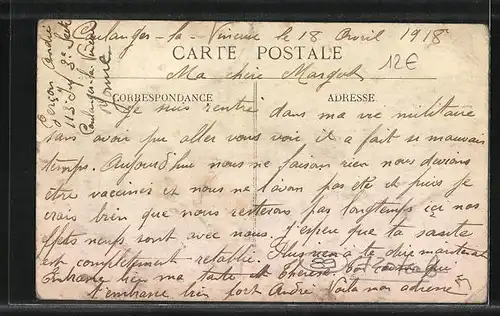 Coulanges-la-Vineuse le 18 Avril 1918
CARTE POSTALE
12€
Ma chère Margot
CORRESPONDANCE
ADRESSE
Je suis rentré dans ma vie militaire
sans avoir pu aller vous voir il a fait si mauvais
temps. Aujourd'hui nous ne faison rien nous devions
etre vacciner et nous ne l'avon pas eté et puis je
crois bien que nous resterons pas longtemps ici nos
effets neufs sont avec nous. J'espere que ta santé
est complètement retablie. Plus rien a te dire maintenant
Embrasse bien ma tante et Therese. Ton
t'embrasse bien fort André Voila mon adresse
André
115
Coulanges-la-Vineuse
Yonne